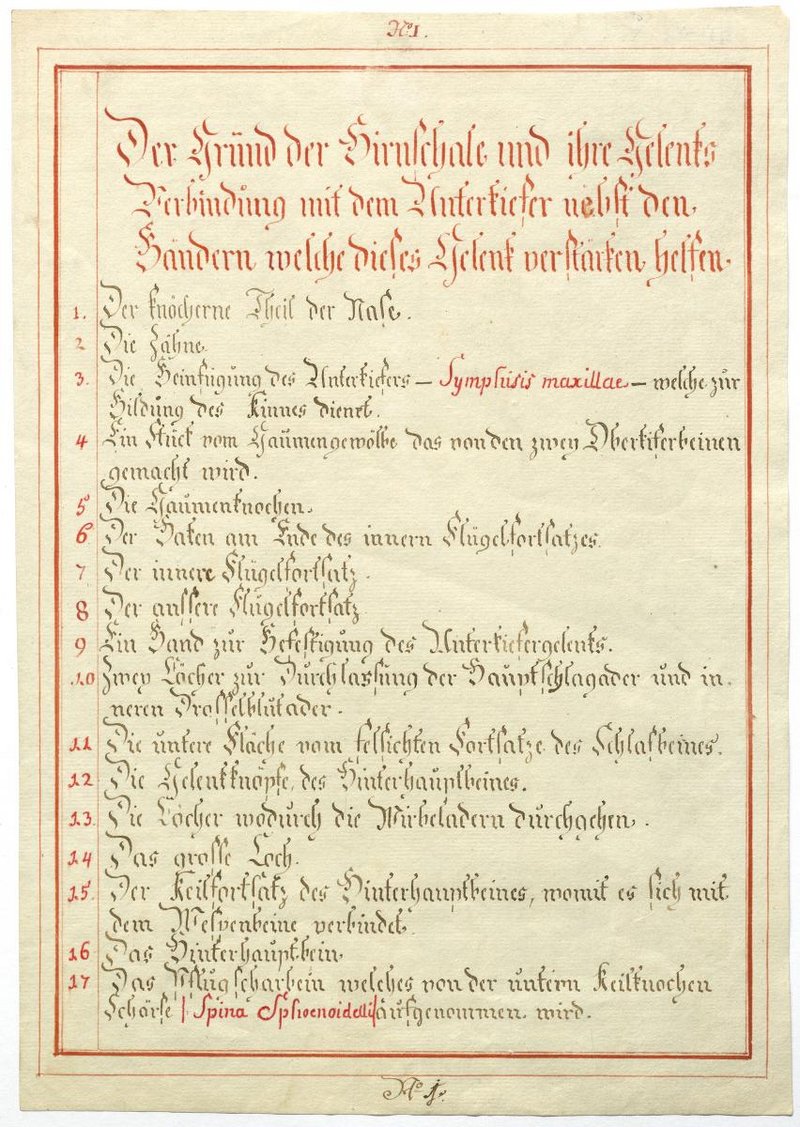 No 1.
Der Gründ der Hirnschale und ihre Gelenks
Verbindung mit dem Unterkiefer nebst den
Bändern welche dieses Gelenk verstärken helfen.
1. Der knöcherne Theil der Nase.
2 Die Zähne
3. Die Beinfügung des Unterkiefers – Symphisis maxillae – welche zür
Bildüng des Kinnes dienet.
4 Ein Stück vom Gaümengewölbe das von den zwey Oberkiferbeinen
gemacht wird.
5 Die Gaumenknochen.
6 Der Haken am Ende des innern Flügelfortsatzes
7 Der innere Flügelfortsatz.
8 Der aussere Flügelfortsatz
9 Ein Band zür Befestigung des Unterkiefergelenks.
10 Zwey Löcher zur Dürchlassüng der Haüptschlagader und in-
neren Drosselblutader.
11 Die untere Fläche vom felsichten Fortsatze des Schlafbeines.
12 Die Gelenkknöpfe des Hinterhaüptbeines.
13. Die Löcher wodurch die Wirbeladern durchgehen.
14 Das grosse Loch.
15. Der Keilfortsatz des Hinterhauptbeines, womit es sich mit
dem Wespenbeine verbindet.
16 Das Hinterhauptbein.
17 Das Pflugscharbein welches von der untern Keilknochen
Schärfe | Spina Sphoenoidelli | aüfgenommen wird.
No 1.